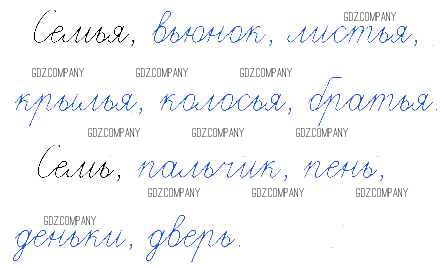 GDZ.COMPANY
Семья, вьюнок, листья,
GDZ.COMPANY GDZ.COMPANY GDZ.COMPANY
крылья, колосья, братья.
GDZ.COMPANY GDZ.COMPANY GDZ.COMPANY
Семь, пальчик, пень,
GDZ.COMPANY GDZ.COMPANY GDZ.COMPANY
GDZ.COMPANY
деньки, дверь.